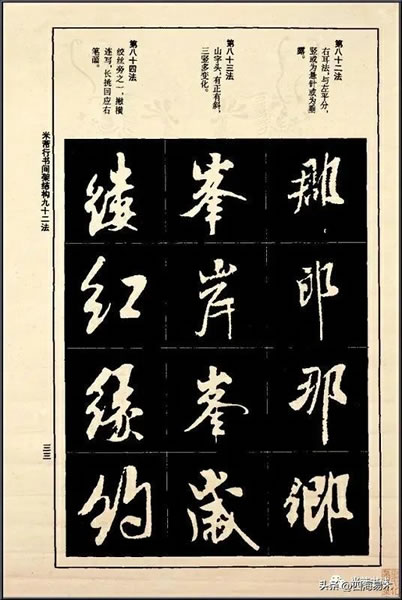 第八十二法
右耳法，与左平分，
竖或为悬针或为垂
露。
第八十三法
山字头，有正有斜，
三竖多变化。
第八十四法
绞丝旁之一，撇横
连写，长挑回应右
笔画。
郎
那
鄉
峯
岸
峯
歲
績
紅
緣
約
米芾行书间架结构九十二法
三三
头条 @四海易木